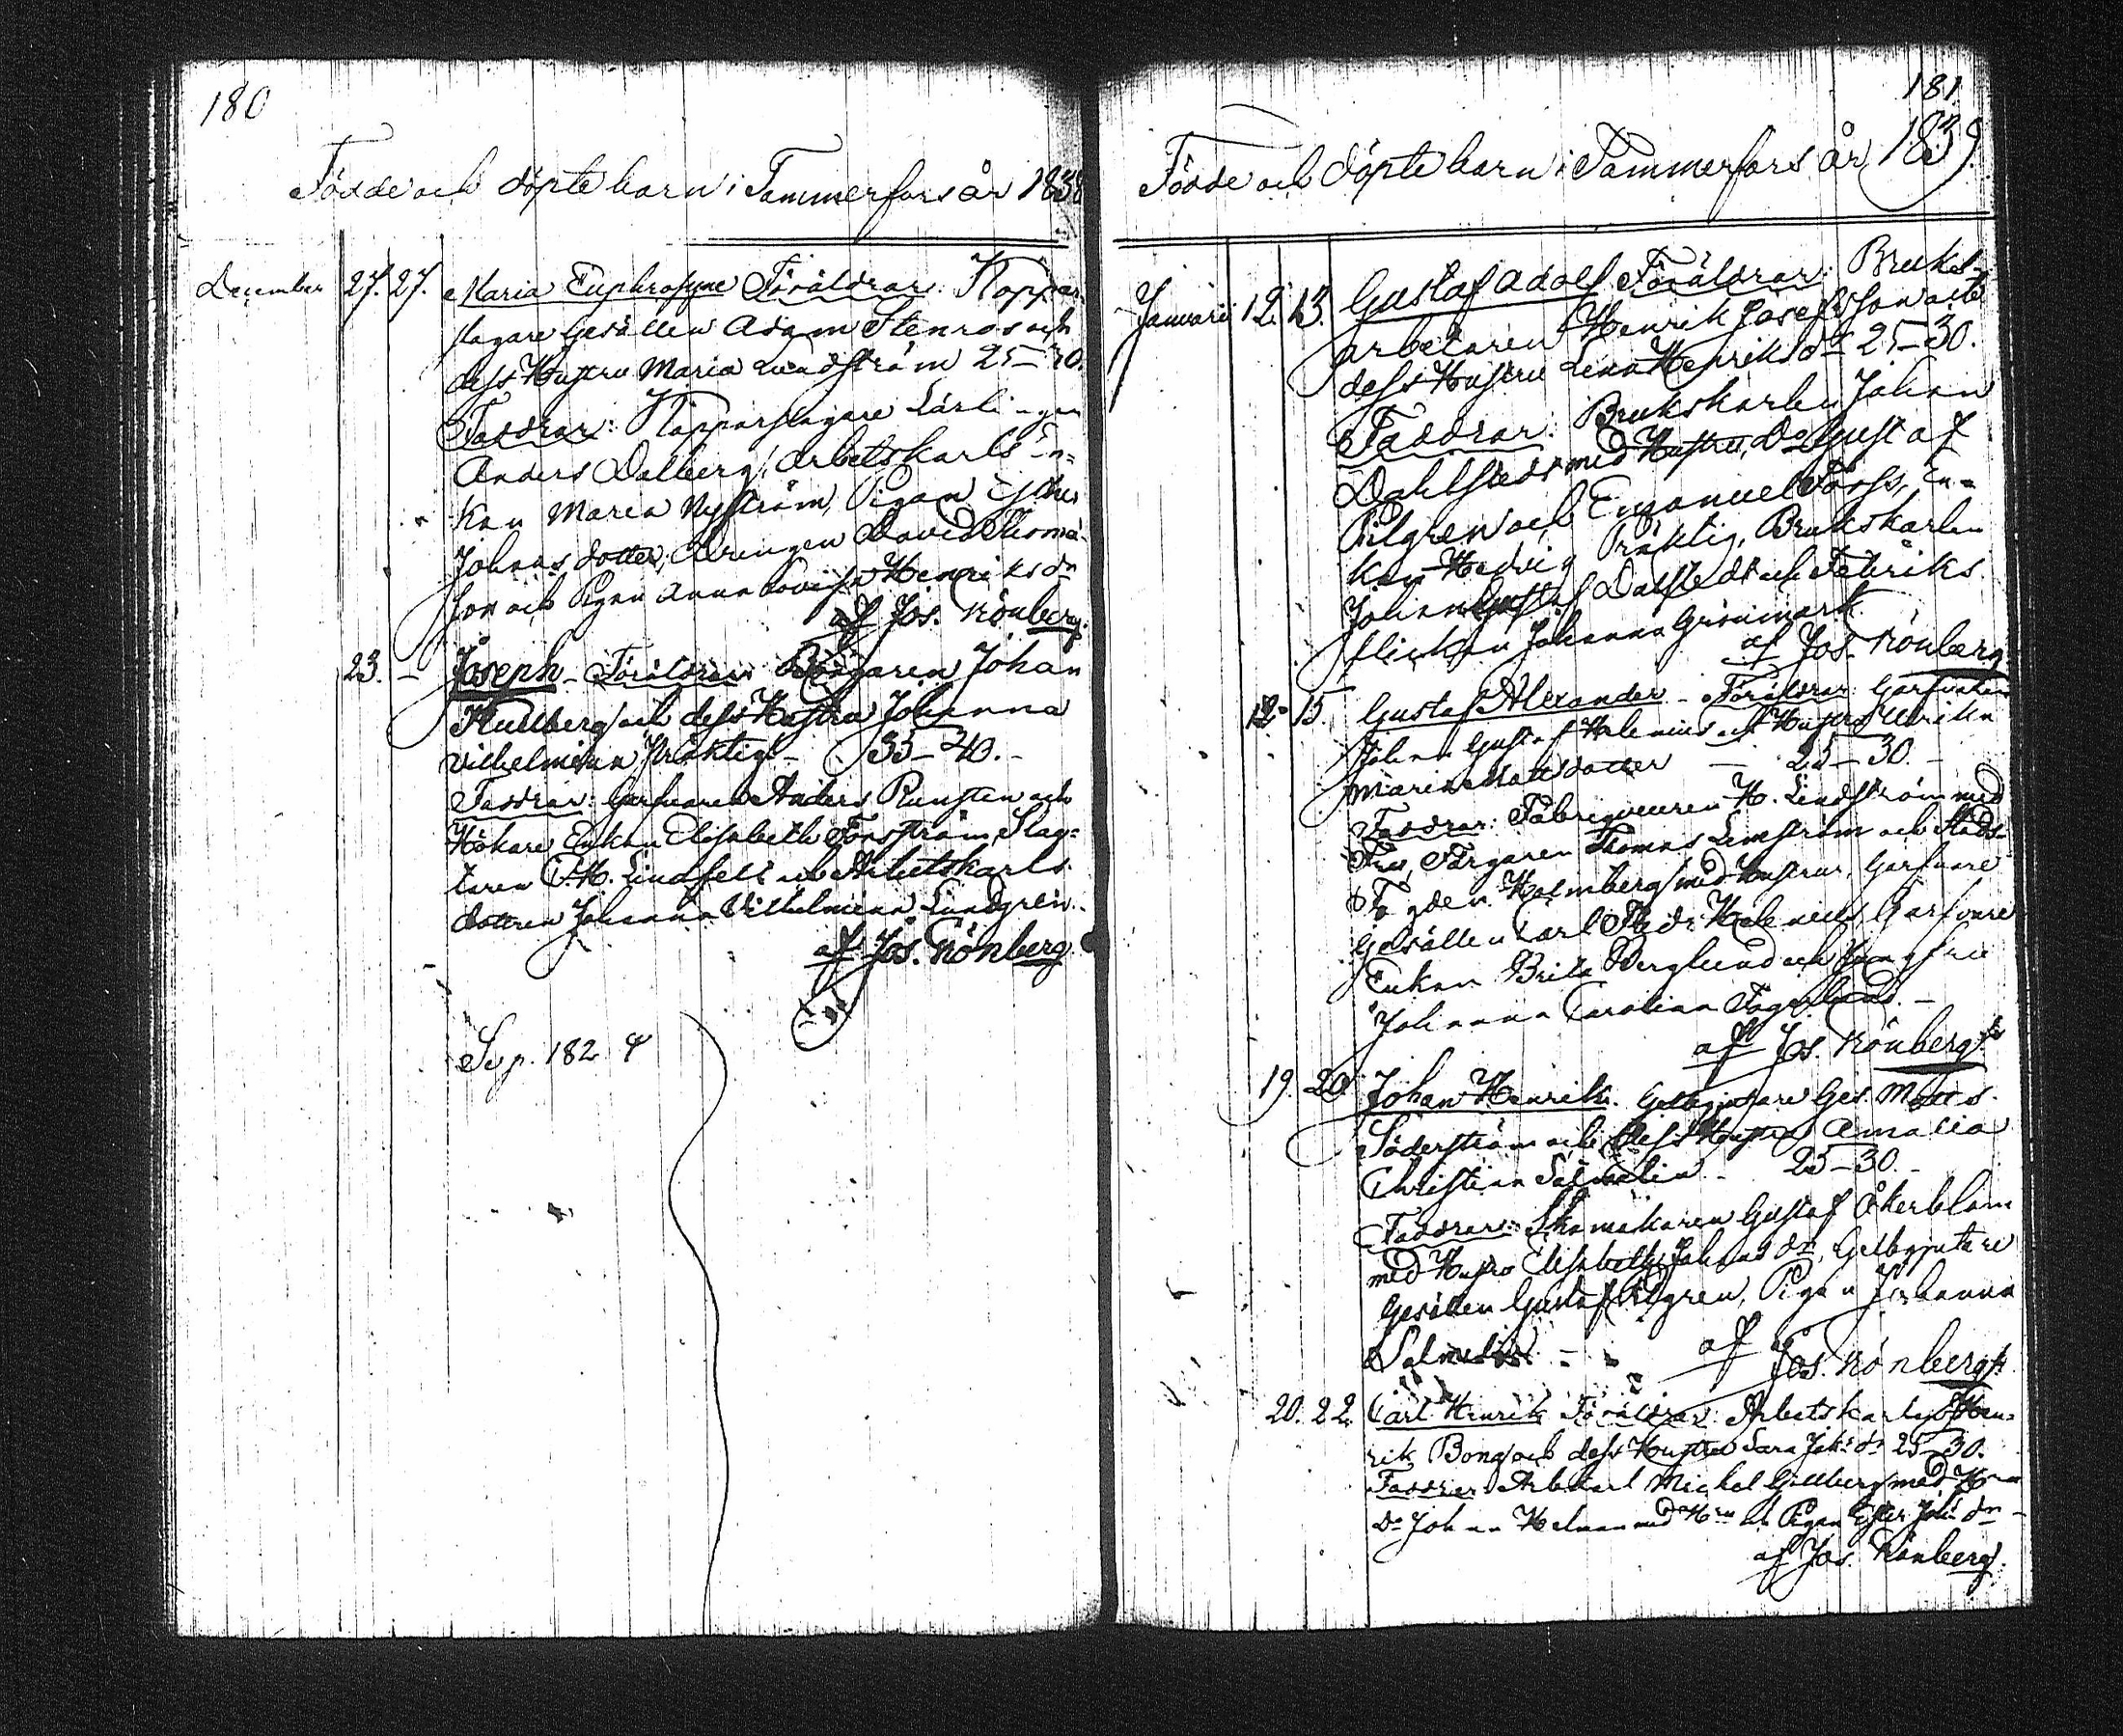 180
Födde och döpte barn i Tammerfors år 1838
December 27. 27. Maria Euphrosyne Föräldrar: Koppar
slagare Gesällen Adam Stenros och
dess Hustru Maria Lundström 25–30.
Faddrar: Kopparslagare Lärlingen
Anders Dalberg, Arbetskarls En-
kan Maria Nyström, Pigan
Johans dotter, Drengen David Thomæ
son och Pigan Anna Lovisa Henriksdr
af Jos. Rönberg.
23. – Joseph – Föräldrar Johan
Kullberg och dess Hustru Johanna
Vilhelmina Präktig – 35–40. –
Faddrar: Garfvaren Anders Runsten och
Hökare Enkan Elisabeth Forsström, Slag-
taren Lindfelt och Arbetskarls
dottren Johanna Vilhelmina Lundgrén.
af Jos. Rönberg
Se p. 182
181.
Födde och döpte barn i Tammerfors år 1839.
Januarii 12. 13. Gustaf Adolf Föräldrar: Bruks-
arbetaren Henrik Josefsson och
dess Hustru Lena Henriksdr 25–30.
Faddrar: Brukskarlen Johan
Dahlstedt med Hustru, Do Gustaf
Pilgren och Emanuel Forss, En-
kan Hedvig Präktig, Brukskarlen
Johan Gustaf Dalstedt och Fabriks
flickan Johanna Grönmark
af Jos. Rönberg
12. 15. Gustaf Alexander – Föräldrar: Garfvaren
Johan Gustaf Helenius och Hustru Ulrika
Maria Mattsdotter – 25–30. –
Faddrar: Fabriqveuren H. Lindström med
Fru, Färgaren Thomas Lindström och Stads-
Fogden Holmberg med Hustrur, Garfvare
Gesällen Carl Fredr. Helenius, Garfvare
Enkan Brita Berglund och Jungfru
Johanna Carolina Fagerlund. –
af Jos. Rönberg
19. 20. Johan Henrik. Gelbgjutare Ges. Matts
Söderström och dess Hustru Amalia
Christina Salmelin – 25–30. –
Faddrar: Skomakaren Gustaf Åkerblom
med Hustro Elisabeth Johansdr, Gelbgjutare
Gesällen Gustaf Pilgren, Pigan Johanna
Salmelin – af Jos. Rönberg
20. 22. Carl Henrik Föräldrar: Arbetskarlen Hen-
rik Bong och dess Hustru Sara Johsdr 25–30.
Faddrar: Arbkarl Michel Gillberg med Hru
Do Johan Helman med Hru och Pigan Ester Johsdr –
af Jos. Rönberg.